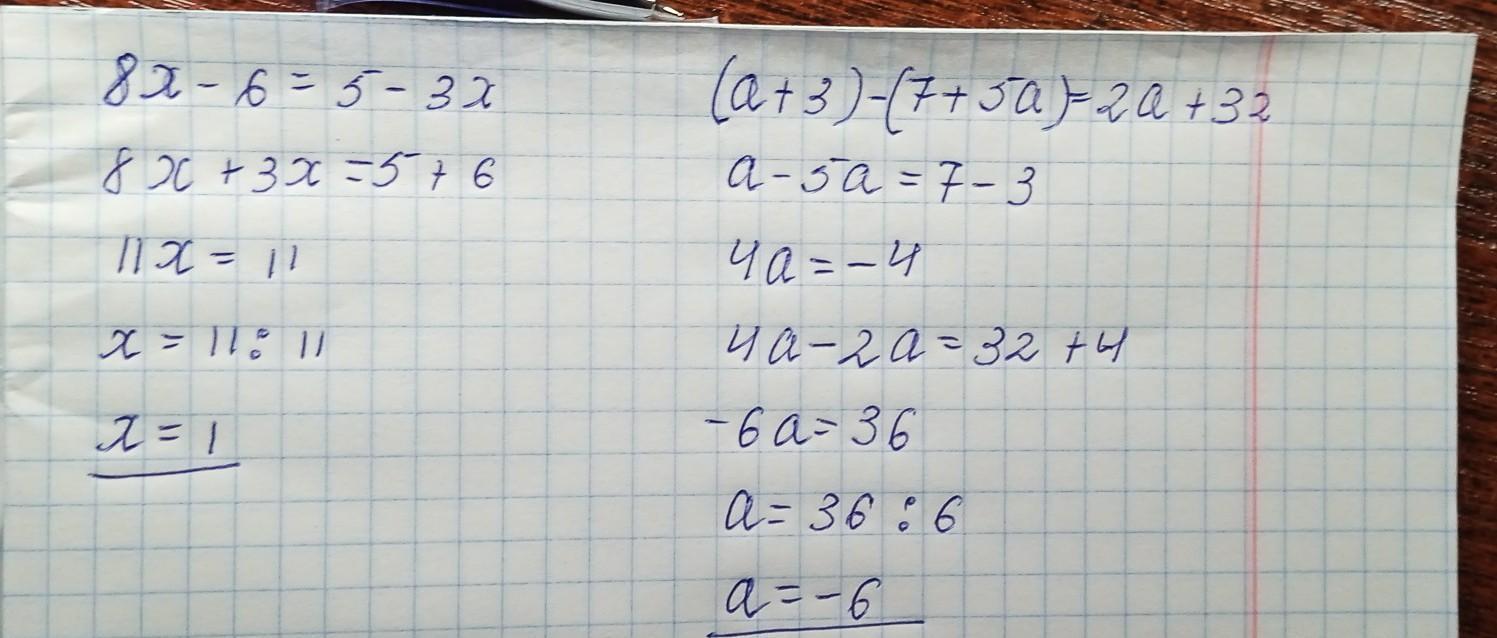 8x - 6 = 5 - 3x
8x + 3x = 5 + 6
11x = 11
x = 11 : 11
x = 1
(a + 3) - (7 + 5a) = 2a + 32
a - 5a = 7 - 3
4a = -4
4a - 2a = 32 + 4
-6a = 36
a = 36 : 6
a = -6